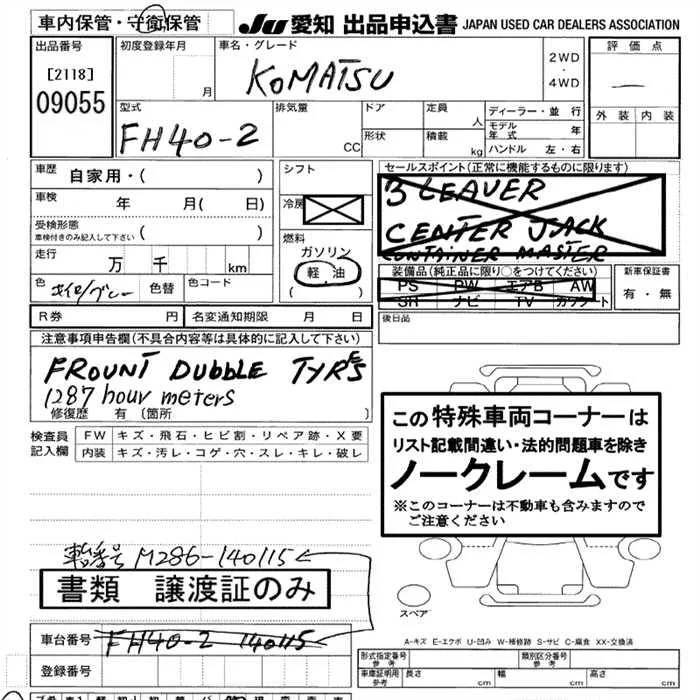 車内保管・守衛保管
JU 愛知 出品申込書 JAPAN USED CAR DEALERS ASSOCIATION
出品番号 初度登録年月 車名・グレード 評価点
[2118] 月 KOMATSU 2WD・4WD
09055
型式 排気量 ドア 定員 人 ディーラー・並行 外装 内装
FH40-2 CC 形状 積載 kg モデル年式 年
ハンドル 左・右
車歴 自家用・( ) シフト セールスポイント(正常に機能するものに限ります)
車検 年 月( 日) 冷房 3 LEAVER
受検形態 車検付きのみ記入して下さい ( ) CENTER JSACK
CONTAINER MASTER
走行 万 千 km 燃料 ガソリン 軽油 ( )
装備品(純正品に限り○をつけてください) 新車保証書
色 色替 色コード PS PW エアB AW 有・無
SR ナビ TV カワシート
R券 円 名変通知期限 月 日 後日品
注意事項申告欄(不具合内容等は具体的に記入して下さい)
FROUNT DUBBLE TYRES
1287 hour meters
修復歴 有 〔箇所 〕
検査員記入欄 FW キズ・飛石・ヒビ割・リペア跡・X要
内装 キズ・汚レ・コゲ・穴・スレ・キレ・破レ
この特殊車両コーナーは
リスト記載間違い・法的問題車を除き
ノークレームです
※このコーナーは不動車も含みますので
ご注意ください
M286-140115
書類 譲渡証のみ
スペア
車台番号 FH40-2 140115
A-キズ E-エクボ U-凹み W-補修跡 S-サビ C-腐食 XX-交換済
登録番号
形式指定番号 参考 類別区分番号 参考
車庫証明用 参考 長さ cm 幅 cm 高さ cm